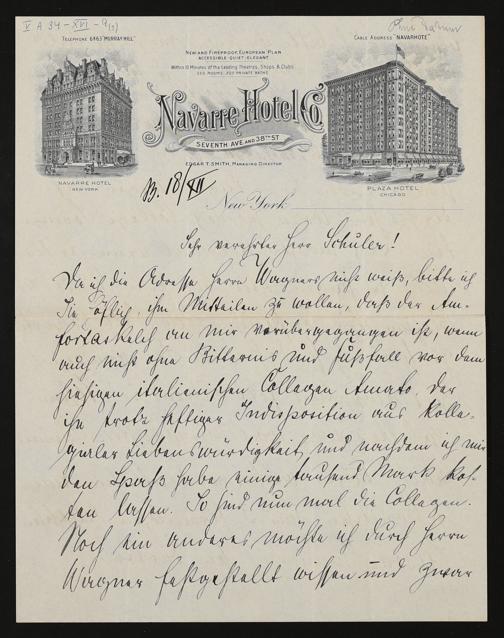 V A 34 - XVI - 9(1)
TELEPHONE 6463 "MURRAY HILL"
CABLE ADDRESS "NAVARHOTE"
NEW AND FIREPROOF, EUROPEAN PLAN
ACCESSIBLE · QUIET · ELEGANT
Within 10 Minutes of the Leading Theatres, Shops & Clubs
350 ROOMS, 200 PRIVATE BATHS
Navarre Hotel Co.
SEVENTH AVE. AND 38TH ST.
EDGAR T. SMITH, MANAGING DIRECTOR
NAVARRE HOTEL
NEW YORK
PLAZA HOTEL
CHICAGO
B. 18/XII
New York
Sehr verehrter Herr Schuler!
Da ich die Adresse Herrn Wagners nicht weiß, bitte ich
Sie höflich, ihm Mitteilen zu wollen, daß der Am-
fortaskelch an mir vorübergegangen ist, wenn
auch nicht ohne Bitternis und Fußfall vor dem
hiesigen italienischen Collegen Amato, der
ihn trotz heftiger Indisposition aus kolle-
gialer Liebenswürdigkeit, und nachdem ich mir
den Spaß habe einige tausend Mark kos-
ten lassen. So sind nun mal die Collegen.
Noch ein anderes möchte ich durch Herrn
Wagner festgestellt wissen und zwar